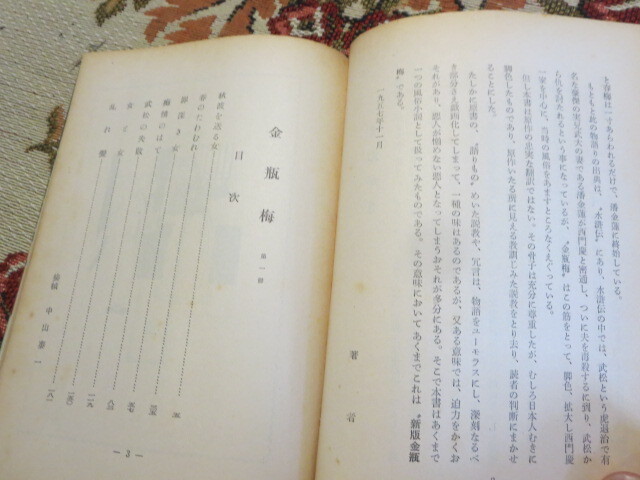 と春梅は一寸あらわれるだけで、潘金蓮に終始している。
もともと此の物語りの出典は、〝水滸伝〟にあり、水滸伝の中では、武松という虎退治で有
名な豪傑の実兄武大の妻である潘金蓮が西門慶と密通し、ついに夫を毒殺するに到り、武松か
ら仇を討たれるという事になっているが、〝金瓶梅〟はこの筋をとって、脚色、拡大し西門慶
一家を中心に、当時の風俗をあますところなくえぐっている。
但し本書は原作の忠実な翻訳ではない。その骨子は充分に尊重したが、むしろ日本人むきに
潤色したものであり、原作いたる所に見える教訓じみた説教をとり去り、読者の判断にまかせ
ることにした。
たしかに原書の、〝語りもの〟めいた説教や、冗言は、物語をユーモラスにし、深刻なるべ
き部分さえ戯画化してしまって、一種の味はあるのであるが、又ある意味では、迫力をかくお
それがあり、悪人が憎めない悪人となってしまうおそれが多分にある。そこで本書はあくまで
一つの風俗小説として扱ってみたものである。その意味においてあくまでこれは〝新版金瓶
梅〟である。
年十一月
著者
金瓶梅
目次
秋波を送る女
春のたわむれ
罪深き女
痴情のはて
武松の失敗
女と女
乱れ髪
装幀 中山泰一
— 3 —